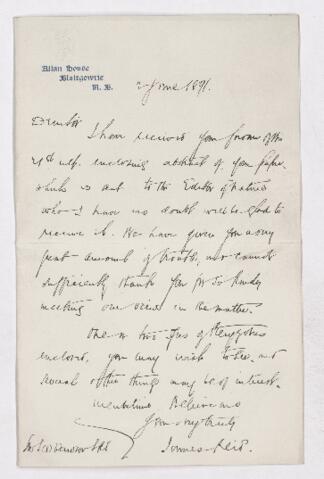 Allan House
Blairgowrie
N. B.
2 June 1891.
Dear Sir
I have received your favour of the
21st ult. enclosing abstract of your paper
which is sent to the Editor of Nature
who I have no doubt will be glad to
receive it. We have given you a very
great amount of trouble, and cannot
sufficiently thank you for so kindly
meeting our views in the matter.
One or two of
enclosed, you may wish to see, and
several other things may be of interest.
Believe me
Yours very truly
James Reid.